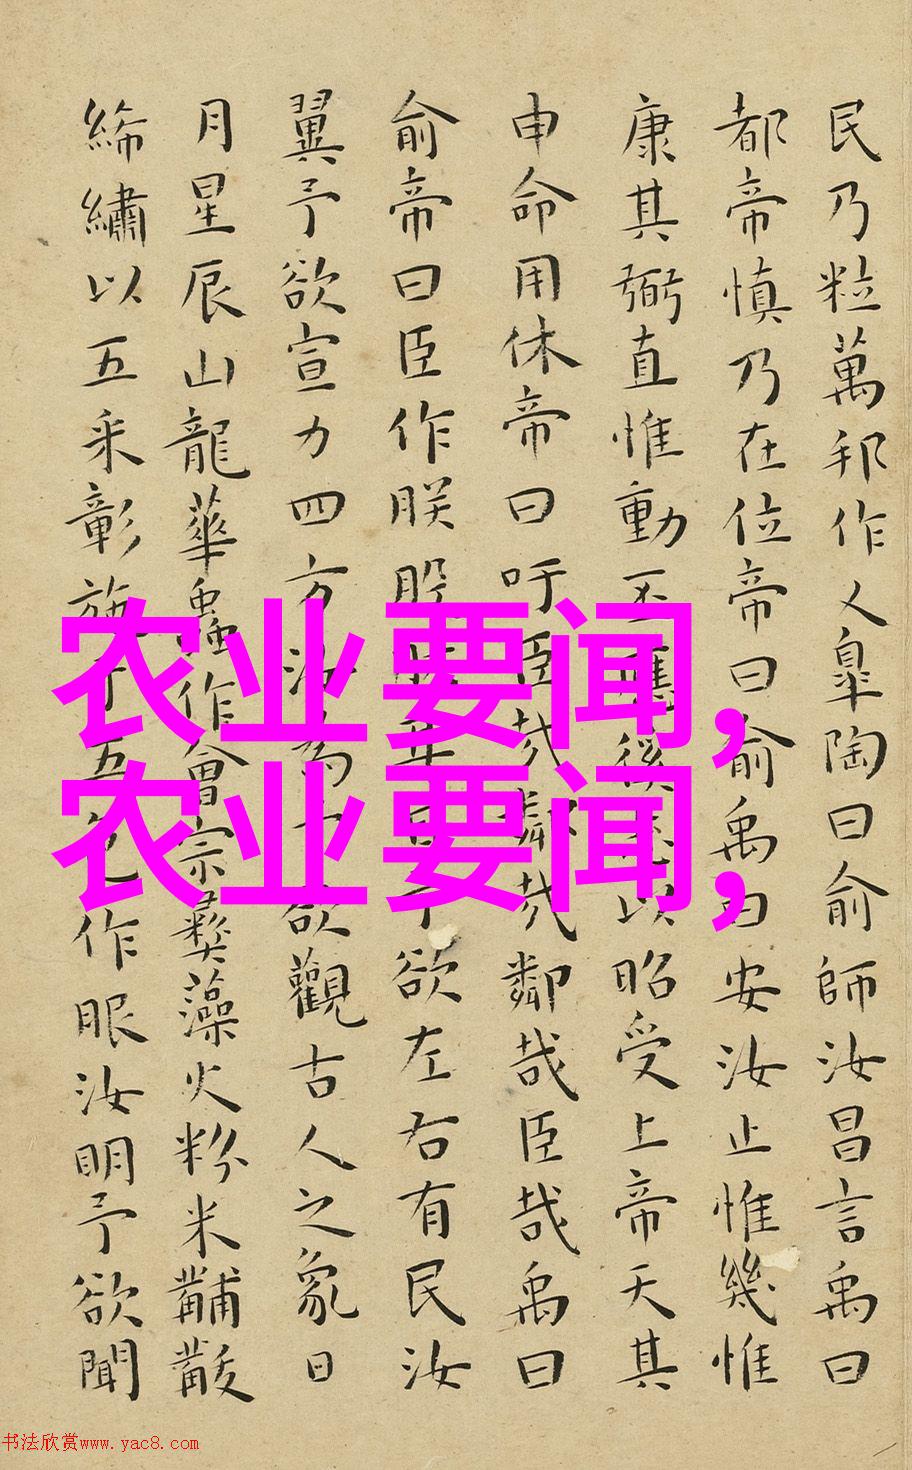 民乃粒萬邦作乂皐陶曰俞師汝昌言禹曰
都帝慎乃在位帝曰俞禹曰安汝止惟幾惟
康其弼直惟動丕應徯志以昭受上帝天其
申命用休帝曰吁臣哉鄰哉鄰哉臣哉禹曰
俞帝曰臣作朕股肱耳目予欲左右有民汝
翼予欲宣力四方汝為予欲觀古人之象日
月星辰山龍華蟲作會宗彝藻火粉米黼黻
絺繡以五采彰施于五色作服汝明予欲聞
农业要闻,
农业要闻,
书法欣赏www.yac8.com